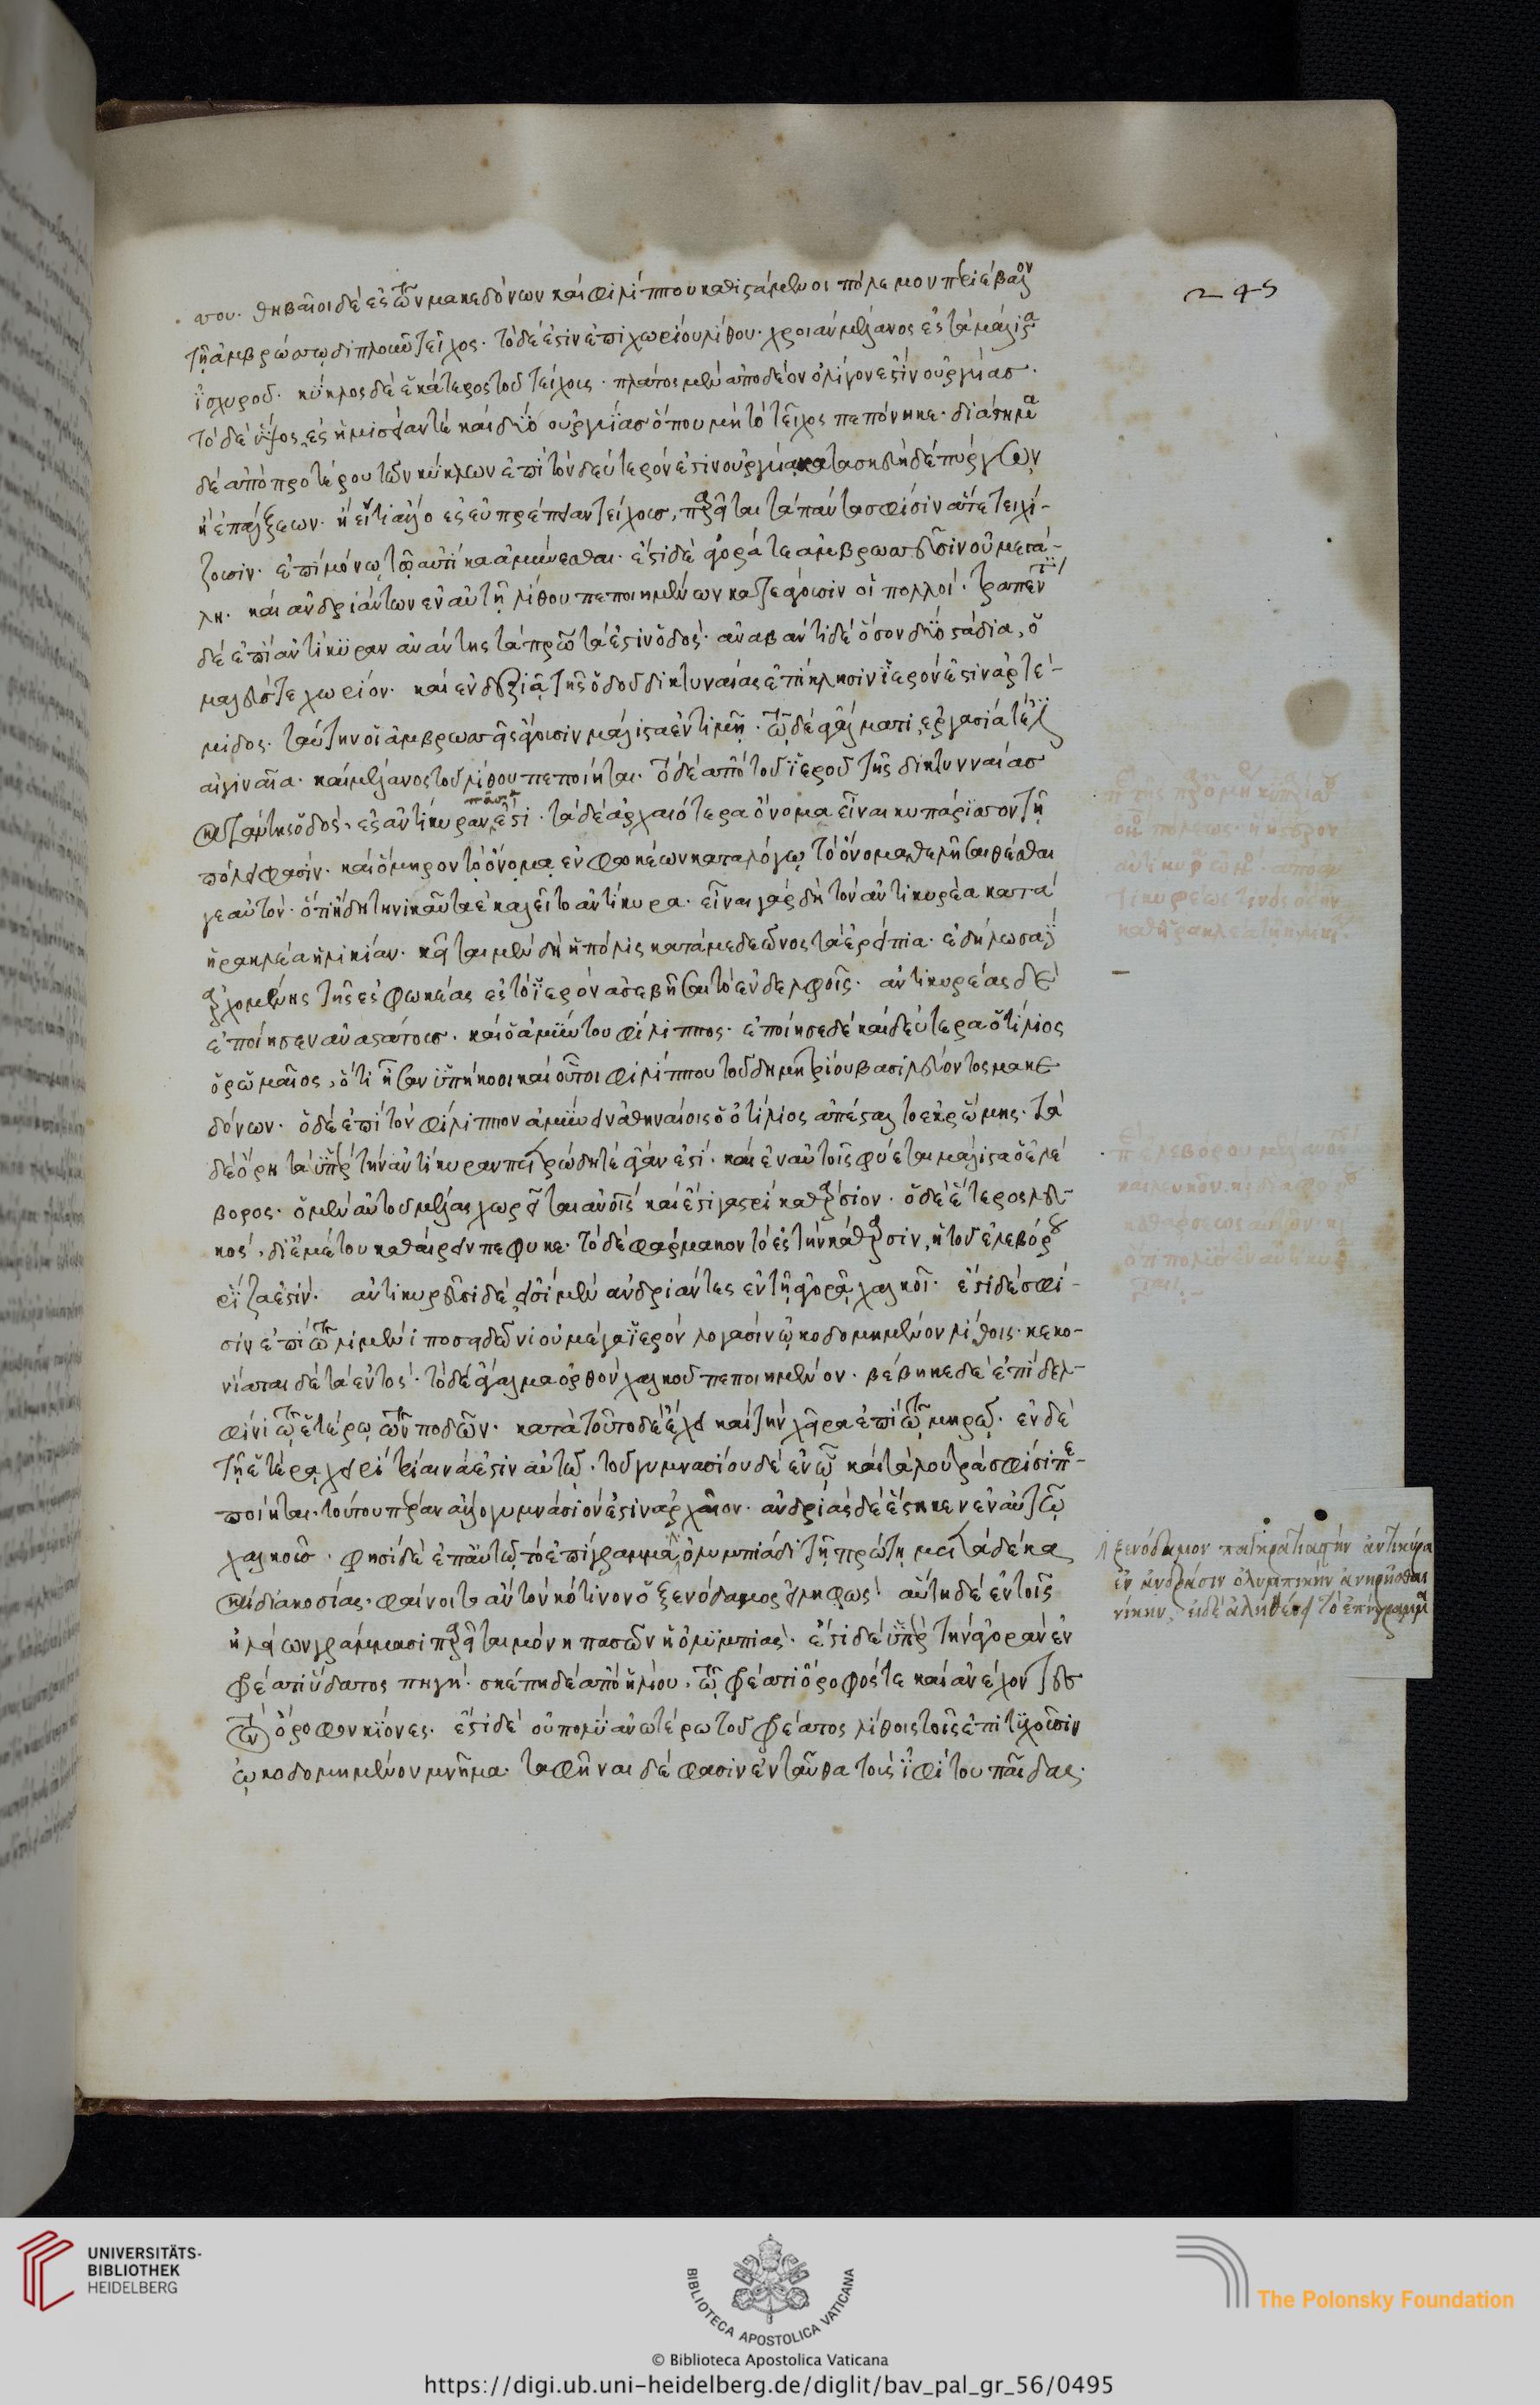 που. θηβαῖοι δὲ ἐς τῶν μακεδόνων καὶ φιλίππου καθιστάμενοι πόλεμον περιέβαλον
τῇ ἀμβρώσῳ διπλοῦν τεῖχος. τὸ δέ ἐστιν ἐπιχωρίου λίθου. χροιὰν μέλανος ἐς τὰ μάλιστα
ἰσχυροῦ. κύκλος δὲ ἑκάτερος τοῦ τείχους. πλάτος μὲν ἀποδέον ὀλίγον ἐστὶν οὐργυιᾶς.
τὸ δὲ ὕψος ἐς ἥμισυ καὶ δύο οὐργυιᾶς ὅπου μὴ τὸ τεῖχος πεπόνηκε. διάστημα
δὲ ἀπὸ προτέρου τῶν κύκλων ἐπὶ τὸν δεύτερόν ἐστιν οὐργυιὰ κατασκευὴ δὲ πύργων
ἢ ἐπάλξεων. ἢ εἴ τι ἄλλο ἐς εὐπρέπειαν τείχους, παρεῖται τὰ πάντα σφίσιν ἅτε τειχί-
ζουσιν. ἐπὶ μόνῳ τῷ αὐτίκα ἀμύνεσθαι. ἔστι δὲ ἀγορά τε ἀμβρωσεῦσιν οὐ μεγά-
λη. καὶ ἀνδριάντων ἐν αὐτῇ λίθου πεποιημένων κατεάγασιν οἱ πολλοί. τραπέντι
δὲ ἐπ' ἀντίκυραν ἀνάντης τὰ πρῶτά ἐστιν ὁδός. ἀναβάντι δὲ ὅσον δύο στάδια, ὁ
μαλεύς τε χωρίον. καὶ ἐν δεξιᾷ τῆς ὁδοῦ δικτυναίας ἐπίκλησιν ἱερόν ἐστιν ἀρτέ-
μιδος. ταύτην οἱ ἀμβρωσεῖς ἄγουσιν μάλιστα ἐν τιμῇ. τῷ δὲ ἀγάλματι, ἐργασία τέ ἐστιν
αἰγιναία. καὶ μέλανος τοῦ λίθου πεποίηται. τὸ δὲ ἀπὸ τοῦ ἱεροῦ τῆς δικτυνναίας
κατάντης ὁδός. ἐς ἀντίκυραν ἐστί. τὰ δὲ ἀρχαιότερα ὄνομα εἶναι κυπάρισσον τῇ
πόλει φασίν. καὶ ὅμηρον τὸ ὄνομα ἐν φωκέων καταλόγῳ τὸ ὄνομα θελῆσαι θέσθαι
γε αὐτόν. ὅτι ἤδη τηνικαῦτα ἐκαλεῖτο ἀντίκυρα. εἶναι γὰρ δὴ τὸν ἀντικυρέα κατὰ
ἡρακλέα ἡλικίαν. κεῖται μὲν δὴ ἡ πόλις κατὰ μεδεῶνος τὰ ἐρείπια. ἐδήλωσα δὲ
ἀρχομένης τῆς ἐς φωκέας ἐς τὸ ἱερὸν ἀσεβῆσαι τὸ ἐν δελφοῖς. ἀντικυρέας δὲ
ἐποίησεν ἀναστάτους. καὶ ὁ ἀμύντου φίλιππος. ἐποίησε δὲ καὶ δεύτερα ὁ τίλιος
ὁ ῥωμαῖος, ὅτι ἦσαν ὑπήκοοι καὶ οὗτοι φιλίππου τοῦ δημητρίου βασιλεύοντος μακε
δόνων. ὁ δὲ ἐπὶ τὸν φίλιππον ἀμύνειν ἀθηναίοις ὁ ὀτίλιος ἀπέσταλτο ἐκ ῥώμης. τὰ
δὲ ὄρη τὰ ὑπὲρ τὴν ἀντίκυραν πετρώδη τε ἄγαν ἐστί. καὶ ἐν αὐτοῖς φύεται μάλιστα ὁ ἐλέ
βορος. ὁ μὲν αὐτοῦ μέλας χωρεῖ ται ἀνθρώποις καὶ ἔστι γαστρὶ καθάρσιον. ὁ δὲ ἕτερος λευ-
κός, δι' ἐμέτου καθαίρειν πέφυκε. τὸ δὲ φάρμακον τὸ ἐς τὴν κάθαρσιν, ἡ τοῦ ἐλεβόρου
ῥίζα ἐστίν. ἀντικυρεῦσι δὲ εἰσὶ μὲν ἀνδριάντες ἐν τῇ ἀγορᾷ χαλκοῖ. ἔστι δὲ σφί-
σιν ἐπὶ τῷ λιμένι ποσειδῶνι οὐ μέγα ἱερὸν λογάσιν ᾠκοδομημένον λίθοις. κεκο-
νίαται δὲ τὰ ἐντός. τὸ δὲ ἄγαλμα ὀρθὸν χαλκοῦ πεποιημένον. βέβηκε δὲ ἐπὶ δελ-
φῖνι τῷ ἑτέρῳ τῶν ποδῶν. κατὰ τοῦτο δὲ ἔχει καὶ τὴν χεῖρα ἐπὶ τῷ μηρῷ. ἐν δὲ
τῇ ἑτέρᾳ χειρὶ τρίαινά ἐστιν αὐτῷ. τοῦ γυμνασίου δὲ ἐν ᾧ καὶ τὰ λουτρά σφισι πε-
ποίηται. τούτου πέραν ἄλλο γυμνάσιόν ἐστιν ἀρχαῖον. ἀνδριὰς δὲ ἕστηκεν ἐν αὐτῷ
χαλκοῦς. φησὶ δὲ ἐπ' αὐτῷ τὸ ἐπίγραμμα ὀλυμπιάδι τῇ πρώτῃ μετὰ δέκα
καὶ διακοσίας. φαίνοιτο αὐτὸν κότινον ὁ ξενόδαμος εἰληφώς. αὕτη δὲ ἐν τοῖς
ἠλείων γράμμασι παρεῖται μόνη πασῶν ἡ ὀλυμπιάς. ἔστι δὲ ὑπὲρ τὴν ἀγορὰν ἐν
φρέατι ὕδατος πηγή. σκέπη δὲ ἀπὸ ἡλίου. τῷ φρέατι ὄροφός τε καὶ ἀνέχοντες
τὸν ὄροφον κίονες. ἔστι δὲ οὐ πολὺ ἀνωτέρω τοῦ φρέατος λίθοις τοῖς ἐπιτυχοῦσιν
ᾠκοδομημένον μνῆμα. ταφῆναι δέ φασιν ἐνταῦθα τοὺς ἰφίτου παῖδας.
ξενόδαμον παγκρατιαστὴν ἀντικύρα
ἐν ἀνδράσιν ὀλυμπικὴν ἀνῃρῆσθαι
νίκην, εἰ δὲ ἀληθεύει τὸ ἐπίγραμμα
UNIVERSITÄTS-
BIBLIOTHEK
HEIDELBERG
BIBLIOTECA APOSTOLICA VATICANA
The Polonsky Foundation
© Biblioteca Apostolica Vaticana
https://digi.ub.uni-heidelberg.de/diglit/bav_pal_gr_56/0495